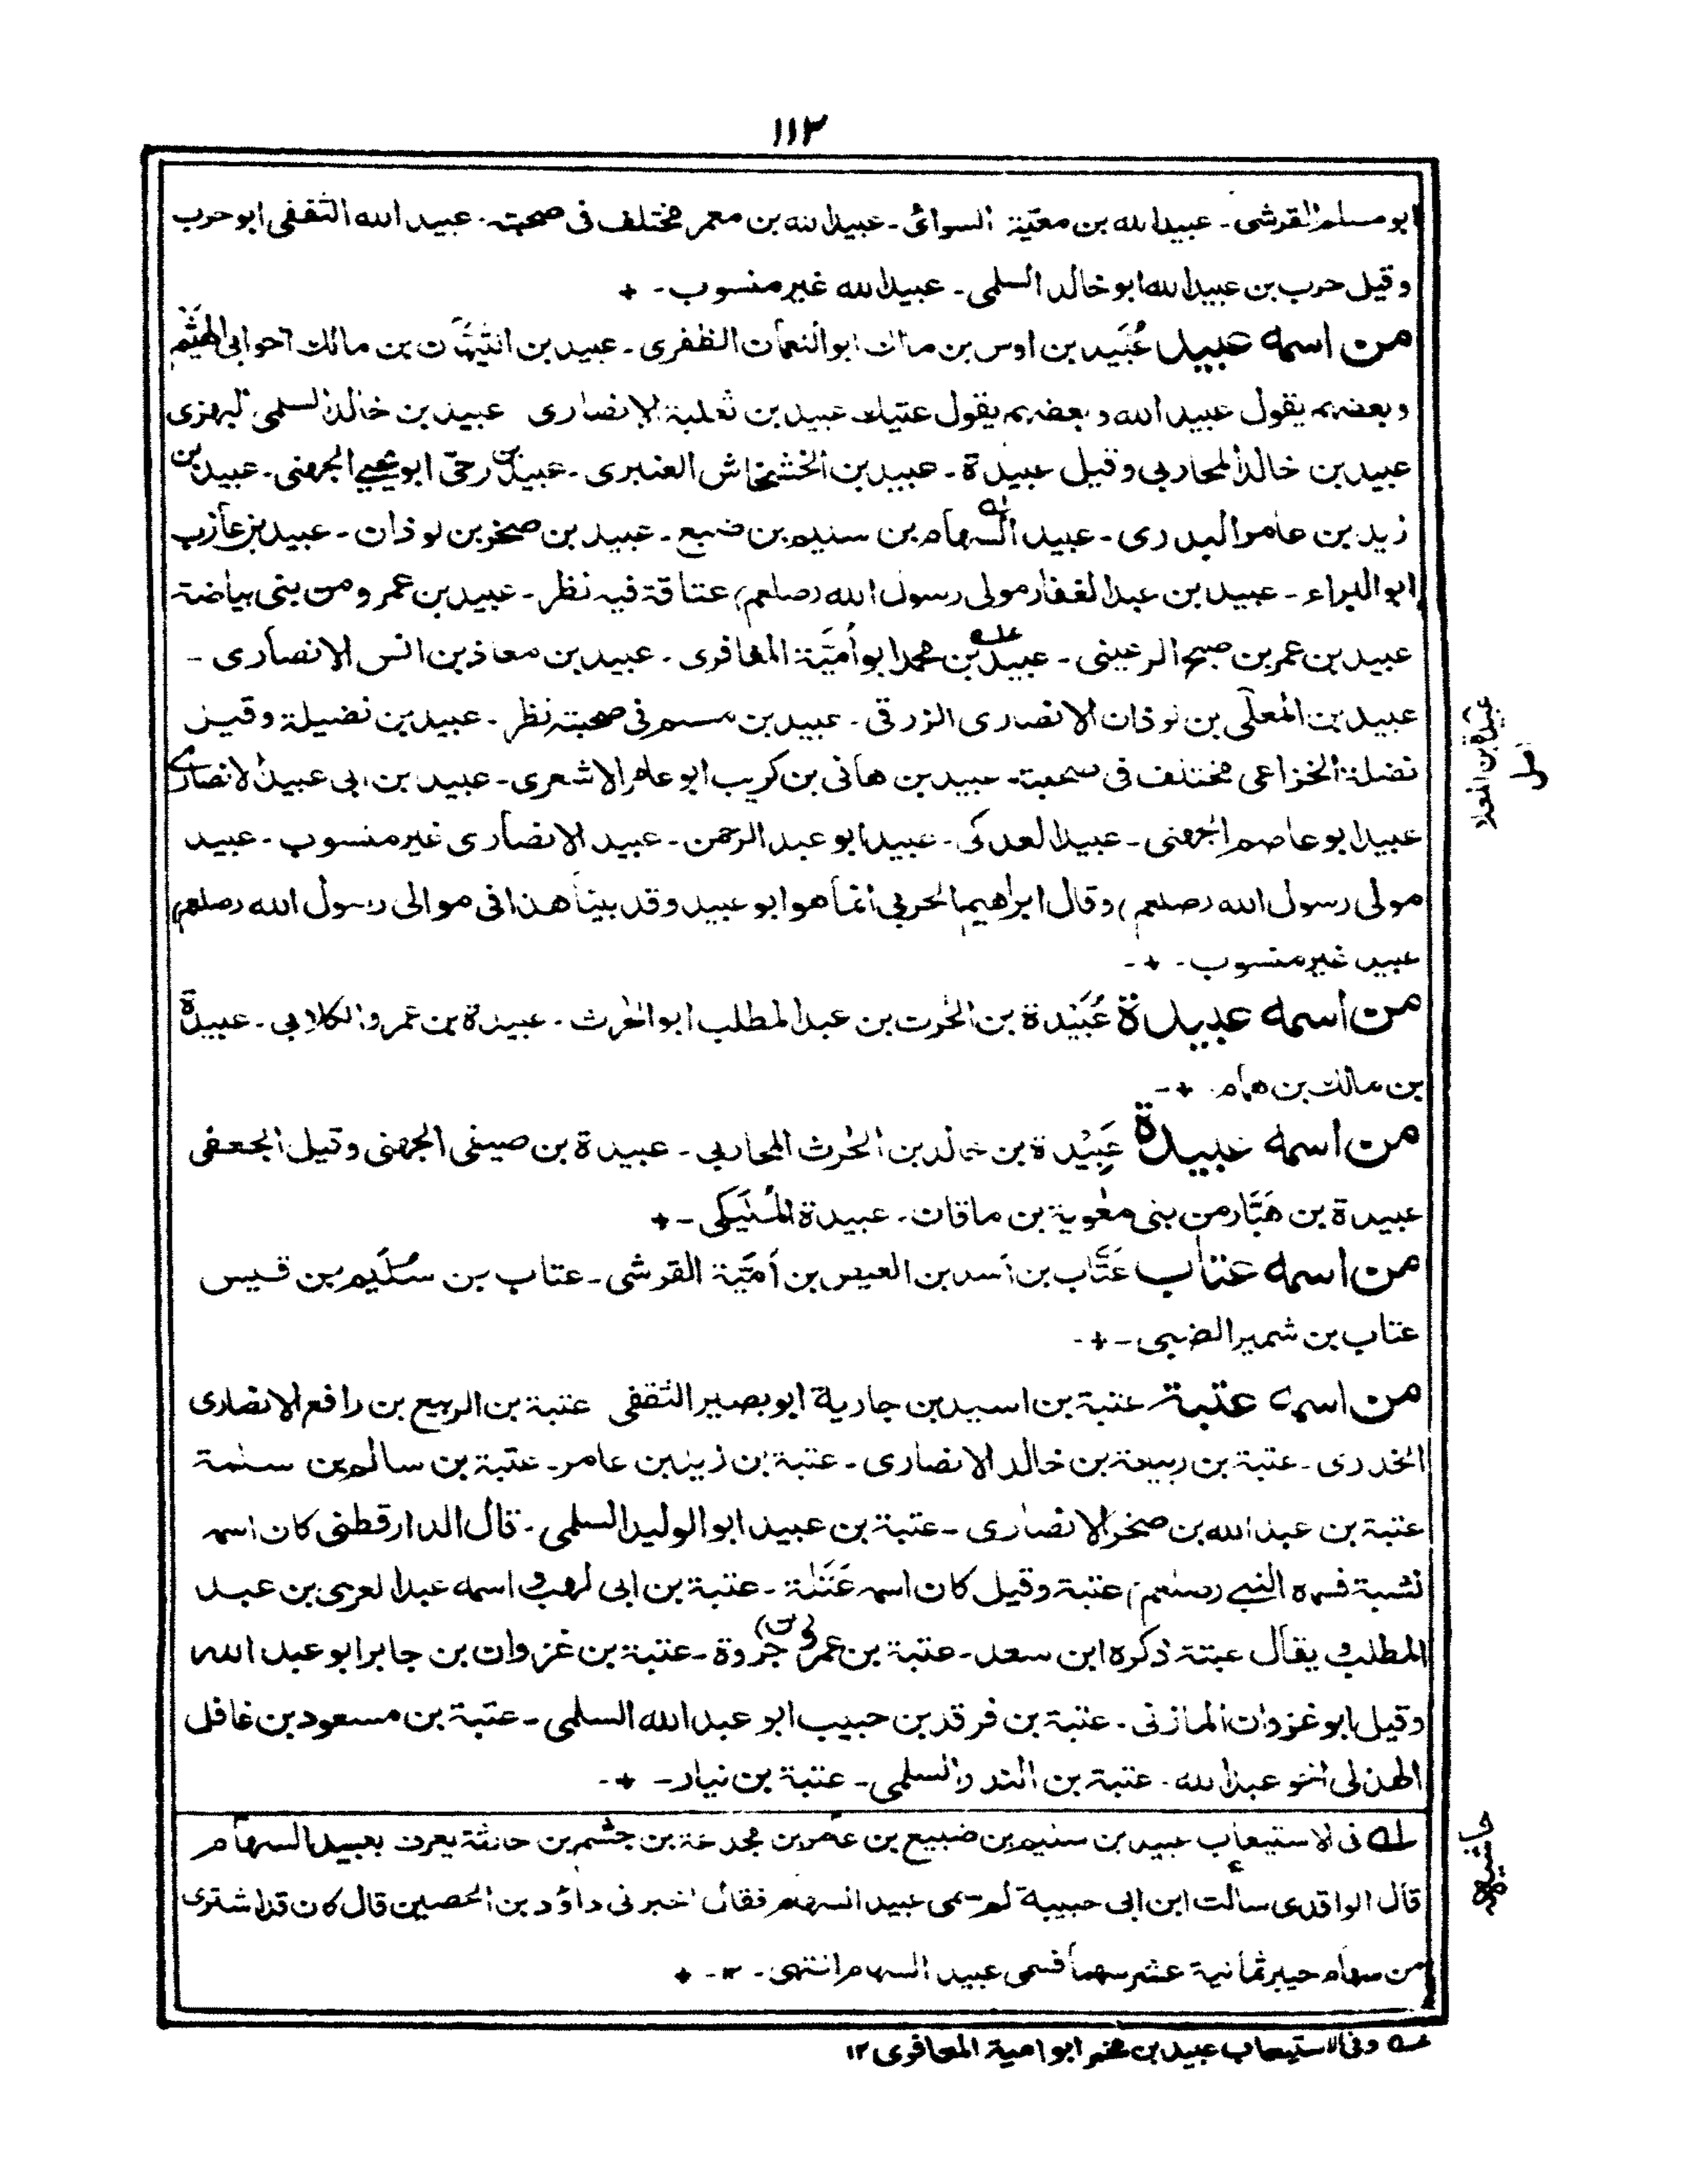 ١١٣
ابو مسلم القرشی۔ عبیدالله بن معیّة السوائی۔ عبیدالله بن معمر مختلف فی صحبته۔ عبید الله الثقفی ابو حرب
وقیل حرب بن عبیدالله ابو خالد السلمی۔ عبیدالله غیر منسوب۔ +
من اسمه عبید عُبَید بن اوس بن مالك ابو النعمان الظفری۔ عبید بن التَّیِّهَان بن مالك اخو ابی الهَیْثَم
وبعضهم یقول عبید الله وبعضهم یقول عتیك۔ عبید بن ثعلبة الانصاری عبید بن خالد السلمی البهزی
عبید بن خالد المحاربی وقیل عبیدة۔ عبید بن الخشخاش العنبری۔ عبید بن رحیّ ابو یحیی الجهنی۔ عبید بن
زید بن عامر البدری۔ عبید السهام بن سلیم بن ضبع۔ عبید بن صخر بن لوذان۔ عبید بن عازب
ابو البراء۔ عبید بن عبد الغفار مولی رسول الله (صلعم) عتاقة فیه نظر۔ عبید بن عمرو من بنی بیاضة
عبید بن عمر بن صبح الرعینی۔ عبید بن محمد ابو اُمَیَّة المعافری۔ عبید بن معاذ بن انس الانصاری۔
عبید بن المعلّی بن لوذان الانصاری الزرقی۔ عبید بن مسلم فی صحبته نظر۔ عبید بن نضیلة وقیل
نضلة الخزاعی مختلف فی صحبته۔ عبید بن هانی بن کریب ابو عامر الاشعری۔ عبید بن ابی عبید الانصاری
عبید ابو عاصم الجهنی۔ عبید العدکی۔ عبید ابو عبد الرحمن۔ عبید الانصاری غیر منسوب۔ عبید
مولی رسول الله (صلعم) وقال ابراهیم الحربی انما هو ابو عبید وقد بینا هذا فی موالی رسول الله (صلعم)
عبید غیر منسوب۔ +۔
من اسمه عبیدة عُبَیْدة بن الحٰرث بن عبد المطلب ابو الحٰرث۔ عبیدة بن عمرو الکلابی۔ عبیدة
بن مالك بن همام۔ +۔
من اسمه عبیدة عَبِیْدة بن خالد بن الحٰرث المحاربی۔ عبیدة بن صیفی الجهنی وقیل الجعفی
عبیدة بن هَبَّار من بنی معٰویة بن ماقان۔ عبیدة المُلَیکی۔ +
من اسمه عتاب عَتَّاب بن اَسد بن العیص بن اُمَیَّة القرشی۔ عتاب بن سُلَیم بن قیس
عتاب بن شمیر الضبی۔ +۔
من اسمه عتبة عتبة بن اسید بن جاریة ابو بصیر الثقفی عتبة بن الربیع بن رافع الانصاری
الخدری۔ عتبة بن ربیعة بن خالد الانصاری۔ عتبة بن زید بن عامر۔ عتبة بن سالم بن سلمة
عتبة بن عبد الله بن صخر الانصاری۔ عتبة بن عبید ابو الولید السلمی۔ قال الدارقطنی کان اسمه
نشبة فسماه النبی (صلعم) عتبة وقیل کان اسمه عَتَلة۔ عتبة بن ابی لهب واسمه عبد العزی بن عبد
المطلب یقال عتبة ذکره ابن سعد۔ عتبة بن عمرو (بن) جَروة۔ عتبة بن غزوان بن جابر ابو عبد الله
وقیل ابو غزوان المازنی۔ عتبة بن فرقد بن حبیب ابو عبد الله السلمی۔ عتبة بن مسعود بن غافل
الهذلی اخو عبد الله۔ عتبة بن الندر السلمی۔ عتبة بن نیار۔ +۔
له فی الاستیعاب عبید بن سلیم بن ضبیع بن عامر بن مجدعة بن جشم بن حارثة یعرف بعبید السهام
قال الواقدی سالت ابن ابی حبیبة لم سمی عبید السهام فقال اخبرنی داؤد بن الحصین قال کان قد اشتری
من سهام خیبر ثمانیة عشر سهما فسمی عبید السهام انتهی۔ ۱۲۔ +
عه وفی الاستیعاب عبید بن مخمر ابو امیة المعافری ۱۲
عبیدة بن المعلا
اصل
حاشیه